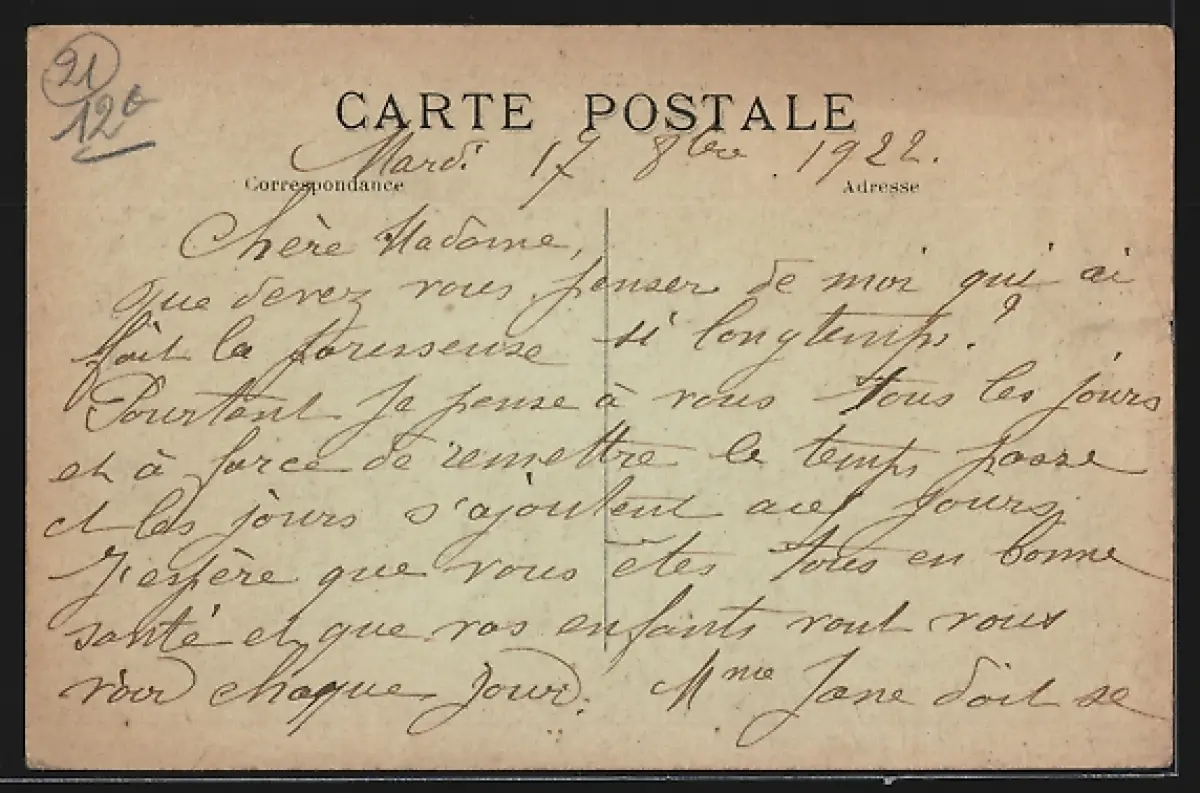 21
12€
CARTE POSTALE
Mardi 17 8bre 1922.
Correspondance
Adresse
Chère Madame,
que devez vous penser de moi qui ai
fait la paresseuse si longtemps?
Pourtant je pense à vous tous les jours
et à force de remettre le temps passe
et les jours s'ajoutent aux jours,
J'espère que vous êtes tous en bonne
santé et que vos enfants vont vous
voir chaque jour. Mme Jane doit se